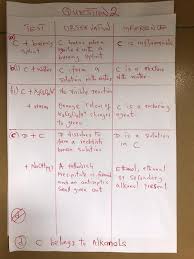 QUESTION 2
TEST OBSERVATION INFERENCE
a) C + burning splint
C burns when ignited with a burning splint
C is inflammable
b)i) C + water
C forms a solution with water
C is miscible with water
ii) C + 
No visible reaction
+ warm
Orange colour of changes to green
C is a reducing agent
c) D + C
D dissolves to form a reddish brown solution
D is a solution in C
+ NaOH(aq)
A yellowish precipitate is formed and an antiseptic smell given out
Ethanol, ethanal or secondary alkanol present
d) C belongs to Alkanols